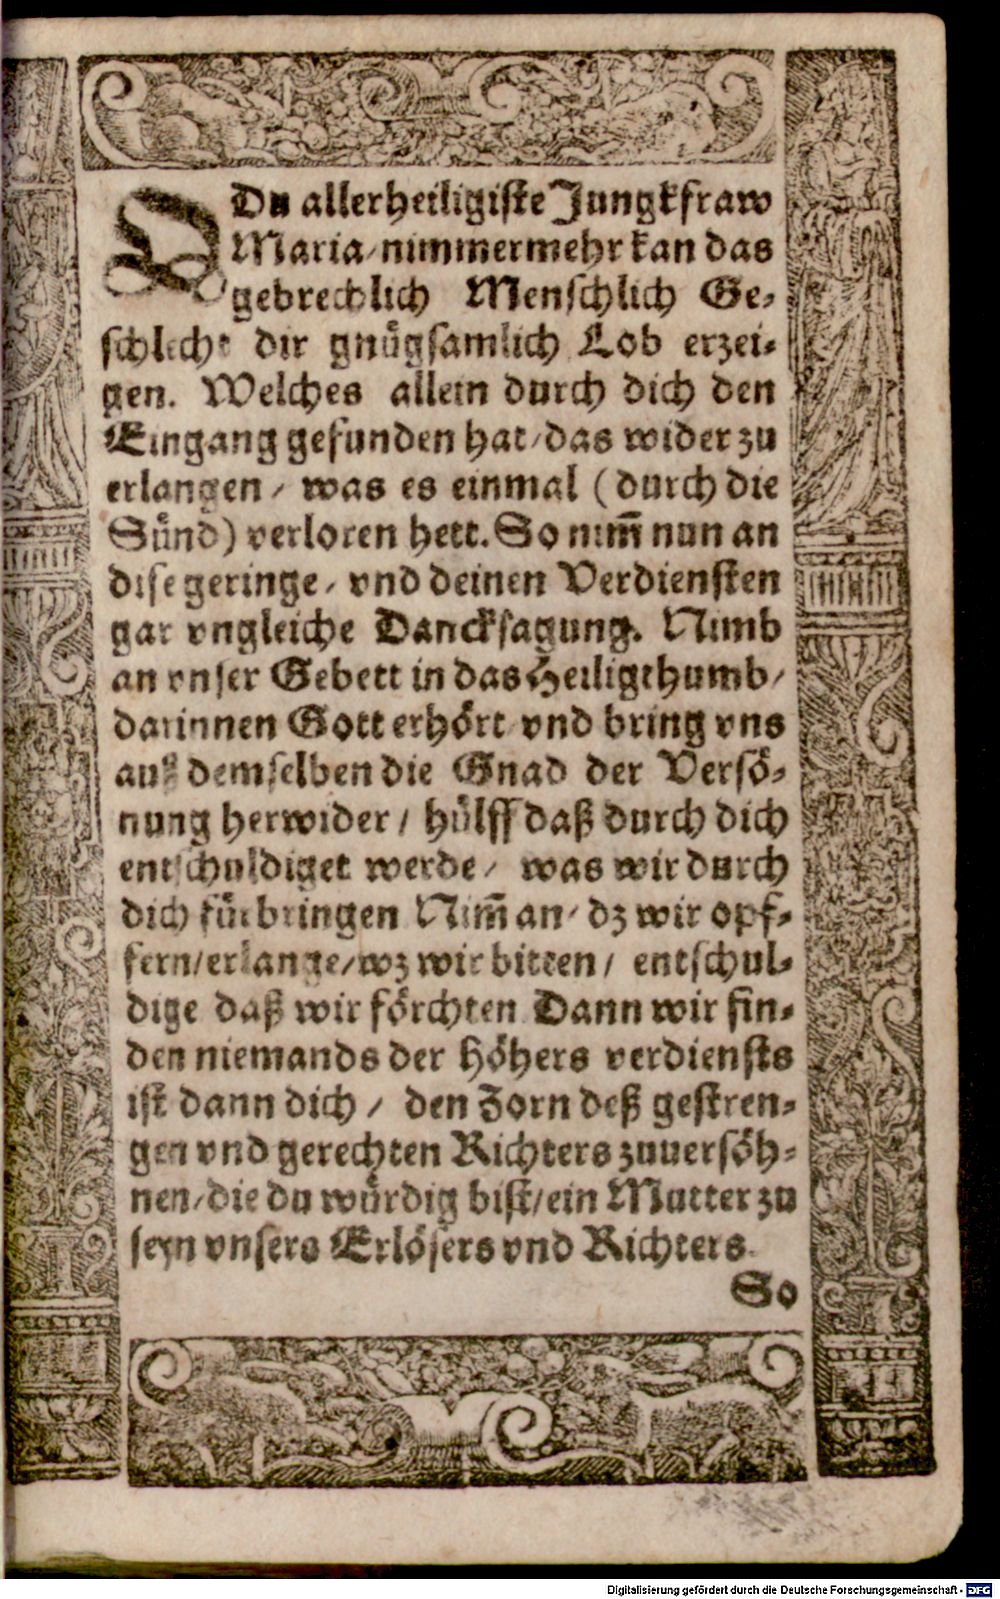 O Du allerheiligiste Jungkfraw
Maria/ nimmermehr kan das
gebrechlich Menschlich Ge-
schlecht dir gnůgsamlich Lob erzei-
gen. Welches allein durch dich den
Eingang gefunden hat/ das wider zu
erlangen/ was es einmal (durch die
Sünd) verloren hett. So nim̃ nun an
dise geringe/ vnd deinen Verdiensten
gar vngleiche Dancksagung. Nimb
an vnser Gebett in das Heiligthumb/
darinnen Gott erhört vnd bring vns
auß demselben die Gnad der Versö-
nung herwider/ hülff daß durch dich
entschuldiget werde/ was wir durch
dich fürbringen Nim̃ an/ dz wir opf-
fern/ erlange/ wz wir bitten/ entschul-
dige daß wir förchten Dann wir fin-
den niemands der höhers verdiensts
ist dann dich/ den Zorn deß gestren-
gen vnd gerechten Richters zuuersöh-
nen/ die du würdig bist/ ein Mutter zu
seyn vnsers Erlösers vnd Richters
So
Digitalisierung gefördert durch die Deutsche Forschungsgemeinschaft - DFG